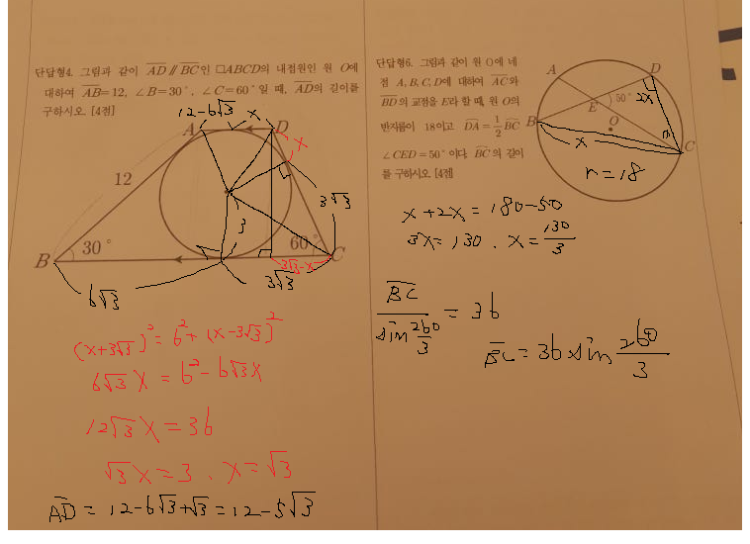 단답형4. 그림과 같이 AD // BC인 □ABCD의 내접원인 원 O에
대하여 AB=12, ∠B=30°, ∠C=60°일 때, AD의 길이를
구하시오. [4점]
12-6√3
x
A
D
x
12
3√3
3
B
30°
60°
C
3√3-x
6√3
3√3
(x+3√3)² = 6² + (x-3√3)²
6√3x = 6² - 6√3x
12√3x = 36
√3x = 3 . x = √3
AD = 12-6√3+√3 = 12-5√3
단답형6. 그림과 같이 원 O에 네
점 A, B, C, D에 대하여 AC와
BD의 교점을 E라 할 때, 원 O의
반지름이 18이고 DA=1/2 BC
∠CED=50°이다. BC의 길이
를 구하시오. [4점]
A
D
E
50°
2x
B
O
x
C
r=18
x+2x = 180-50
3x=130 . x = 130/3
BC / sin 260/3 = 36
BC = 36 x sin 260/3